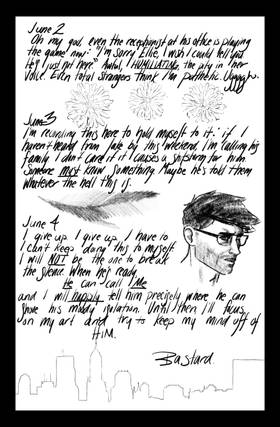 June 2
Oh my god, even the receptionist at his office is playing
the game now: "I'm sorry Ellie, I wish I could help you
He's just not here." Awful, HUMILIATING, the pity in her
voice. Even total strangers think I'm pathetic.
June 3
I'm recording this here to hold myself to it: if I
haven't heard from Jake by this weekend, I'm calling his
family. I don't care if it causes a shitstorm for him.
Someone must know something. Maybe he's told them
whatever the hell this is.
June 4
I give up I give up. I have to
I can't keep doing this to myself.
I will NOT be the one to break
the silence. When he's ready,
he can call Me
and I will happily tell him precisely where he can
shove his moody isolation. Until then I'll focus
on my art and try to keep my mind off of
HIM.
Bastard.